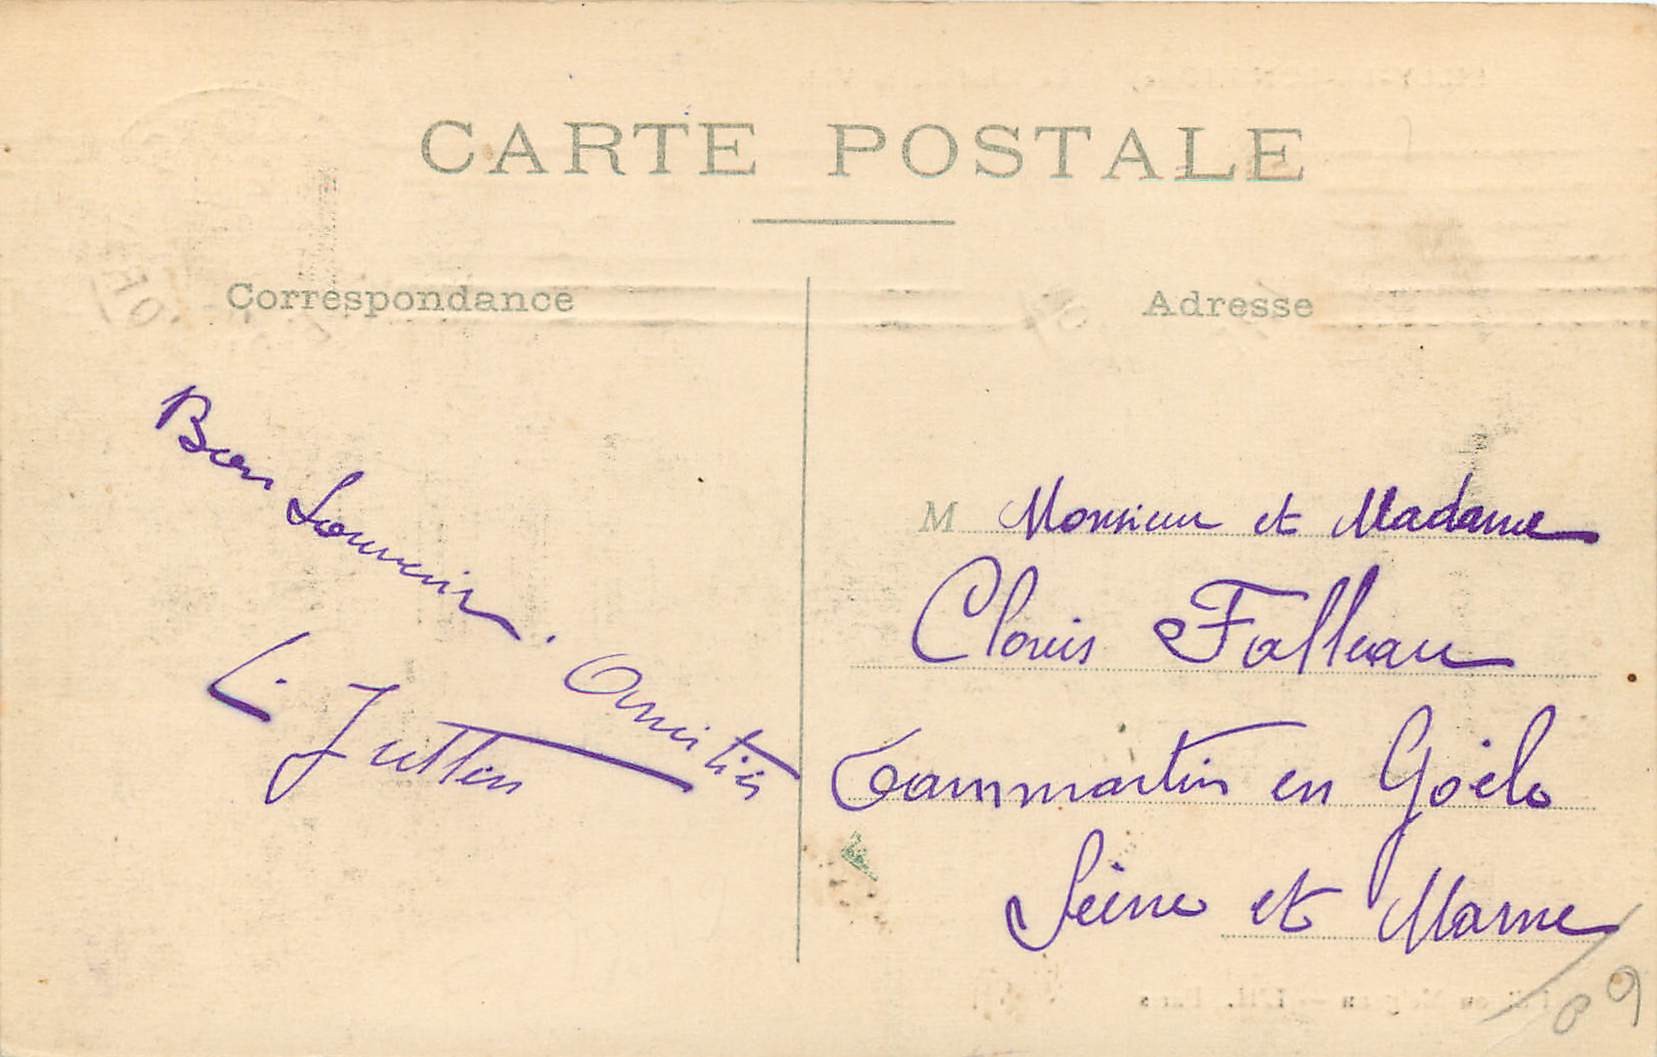 CARTE POSTALE
Correspondance
Bon Souvenir.
Amitiés
L. Jutten
Adresse
M Monsieur et Madame
Clovis Falleau
Dammartin en Goëlo
Seine et Marne